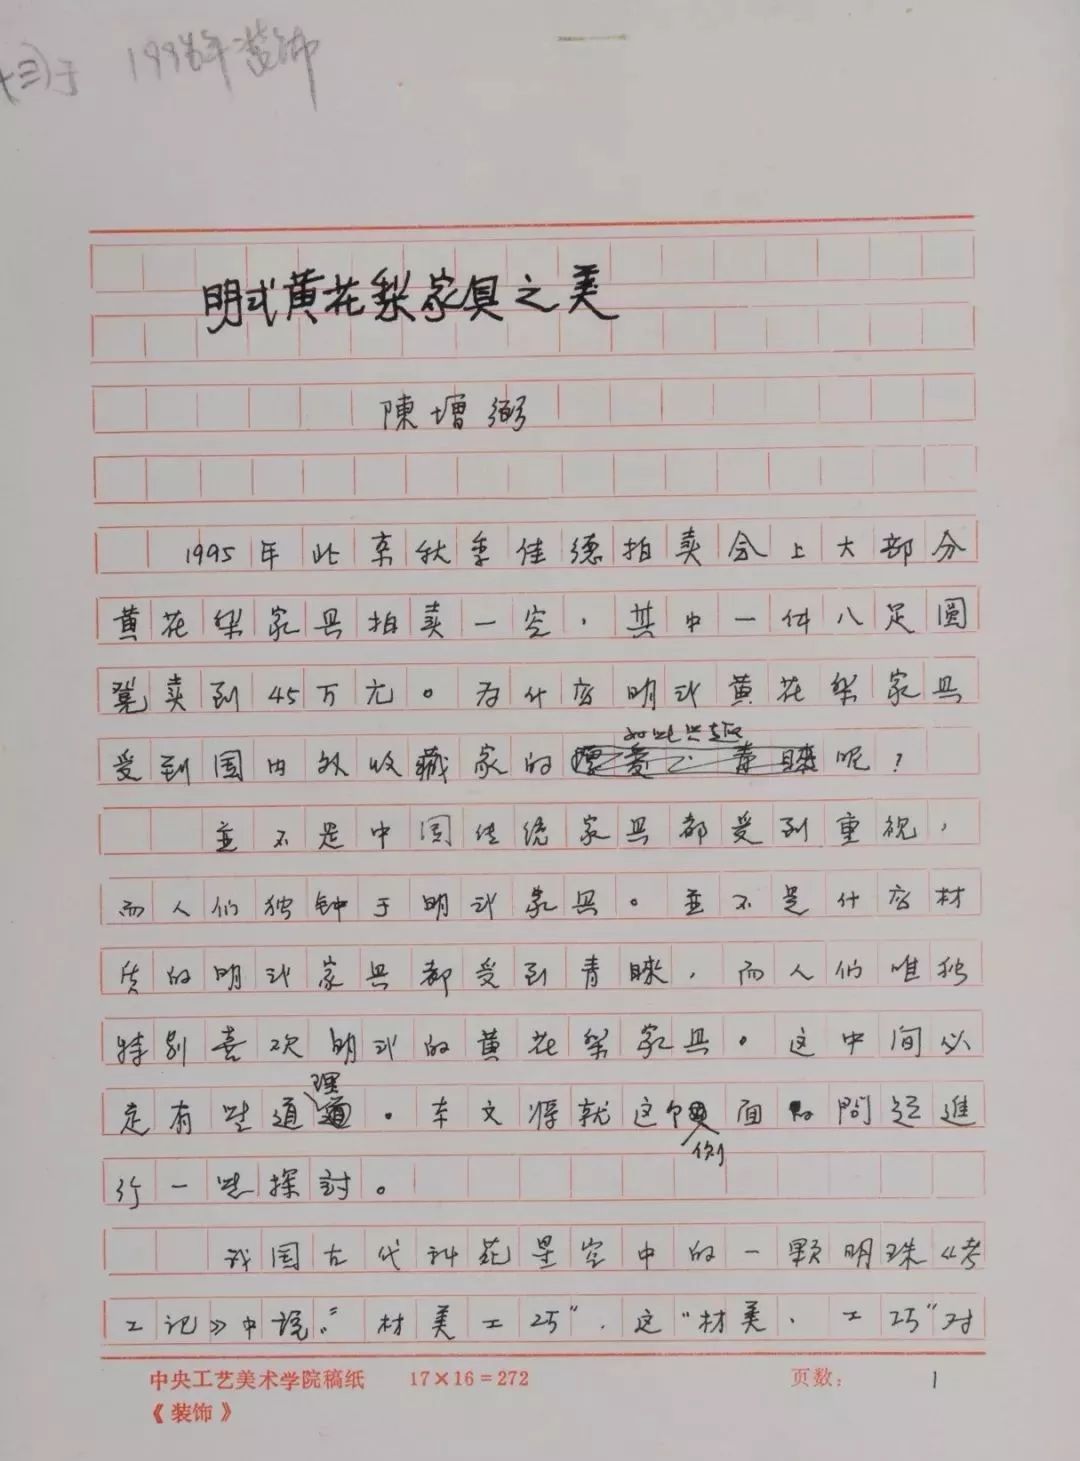 刊于 1996年装饰
明式黄花梨家具之美
陳增弼
1995年北京秋季佳德拍卖会上大部分
黄花梨家具拍卖一空，其中一件八足圆
凳卖到45万元。为什么明式黄花梨家具
如此兴趣
受到国内外收藏家的青睐呢？
並不是中国传统家具都受到重视，
而人们独钟于明式家具。並不是什么材
质的明式家具都受到青睐，而人们唯独
特别喜欢明式的黄花梨家具。这中间必
定有些道理。本文将就这个侧面的問题進
行一些探討。
我国古代科苑星空中的一颗明珠《考
工记》中说：“材美工巧”，这“材美、工巧”对
中央工艺美术学院稿纸 17×16=272 页数： 1
《装饰》